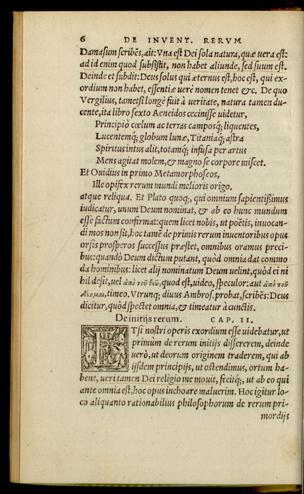 6 DE INVENT. RERUM
Damasum scribẽs, ait: Vna est Dei sola natura, quæ vera est:
ad id enim quod subsistit, non habet aliunde, sed suum est.
Deinde et subdit: Deus solus qui æternus est, hoc est, qui ex-
ordium non habet, essentiæ uerè nomen tenet &c. De quo
Vergilius, tametsi longè fuit à ueritate, natura tamen du-
cente, ita libro sexto Aeneidos cecinisse uidetur,
Principiò cœlum ac terras camposq́; liquentes,
Lucentemq́; globum lunæ, Titaniaq́; astra
Spiritus intus alit, totamq́; infusa per artus
Mens agitat molem, & magno se corpore miscet.
Et Ouidius in primo Metamorphoseos,
Ille opifex rerum mundi melioris origo.
atque reliqua. Et Plato quoq;, qui omnium sapientißimus
iudicatur, unum Deum nominat, & ab eo hunc mundum
esse factum confirmat: quem licet nobis, ut poëtis, inuocan-
di mos non sit, hoc tamẽ de primis rerum inuentoribus opus
orsis prosperos successus præstet, omnibus oramus preci-
bus: quandò Deum dictum putant, quòd omnia dat commo
da hominibus: licet alij nominatum Deum uelint, quòd ei ni
hil desit, uel ἀπὸ τοῦ quod est, uideo, speculor: aut ἀπὸ τοῦ
timeo. Vtrunq; diuus Ambros. probat, scribẽs: Deus
dicitur, quòd spectet omnia, & timeatur à cunctis.
De initijs rerum. CAP. II.
ETsi nostri operis exordium esse uidebatur, ut
primum de rerum initijs dissererem, deinde
uerò, ut deorum originem traderem, qui ab
ijsdem principijs, ut ostendimus, ortum ha-
bent, ueri tamen Dei religio me mouit, feciťq́;, ut ab eo qui
ante omnia est, hoc opus inchoare maluerim. Hoc igitur lo-
co aliquanto rationabilius philosophorum de rerum pri-
mordijs